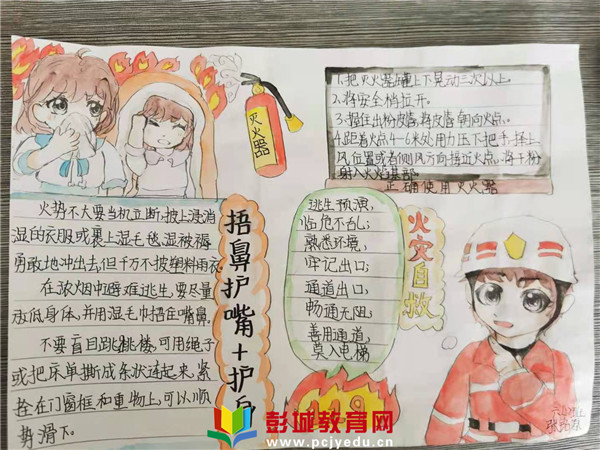 灭火器
1.把灭火器罐上下晃动三次以上。
2.将安全梢拉开。
3.握住出粉皮管,将皮管朝向火点。
4.距着火点4-6米处用力压下把手,择上
风位置或者侧风方向接近火点,将干粉
射入火焰基部。
正确使用灭火器
火势不大要当机立断,披上浸
湿的衣服或裹上湿毛毯,湿被褥
勇敢地冲出去,但千万不披塑料雨衣。
在浓烟中避难逃生,要尽量
放低身体,并用湿毛巾捂住嘴鼻。
不要盲目跳楼,可用绳子
或把床单撕成条状连起来,紧
拴在门窗框和重物上,可以顺
势滑下。
捂鼻护嘴+护
逃生预演,
临危不乱;
熟悉环境,
牢记出口;
通道出口,
畅通无阻;
善用通道,
莫入电梯
火灾自救
119
彭城教育网
www.pcjyedu.cn